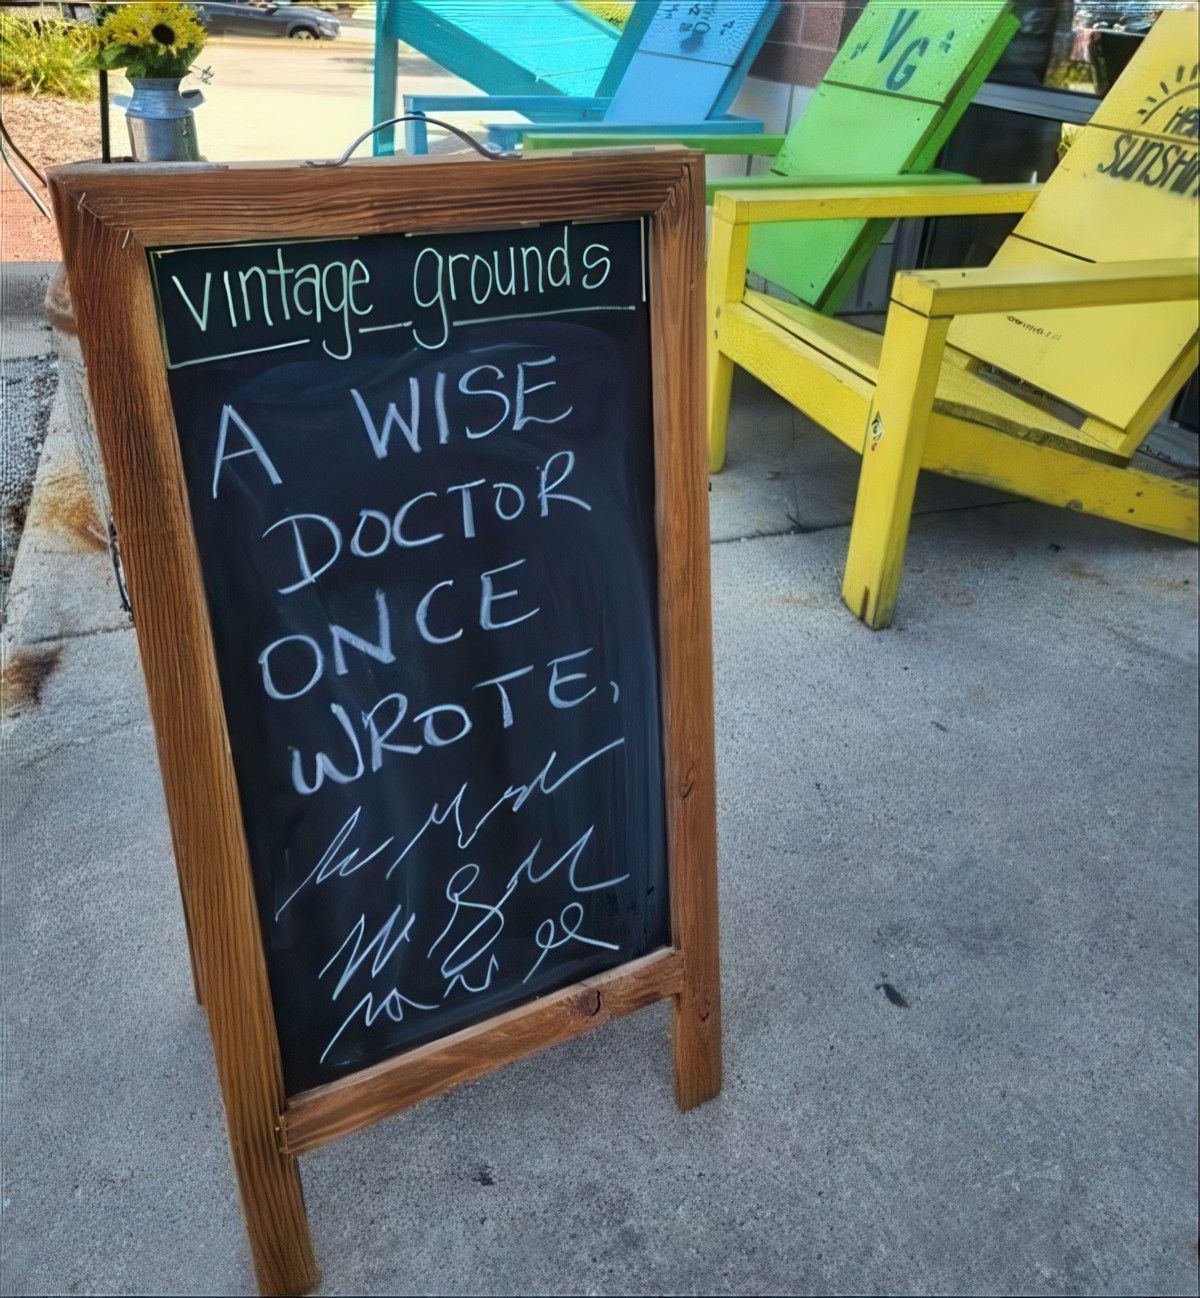 vintage grounds
A WISE
DOCTOR
ONCE
WROTE,
VG
SUNSHIN